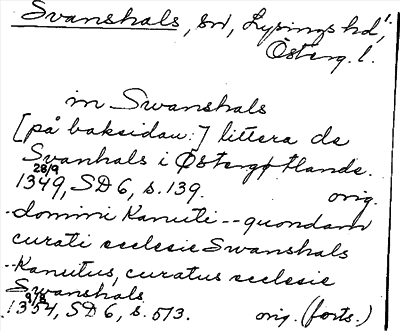 Svanshals, sn, Lysings hd,
Österg. l.
in Swanshals
[på baksidan:] littera de
Svanhals i Østergøtlande.
28/9
1349, SD 6, s. 139. orig.
-domini Kanuti -- quondam
curati ecclesie Swanshals
-Kanutus, curatus ecclesie
Swanshals
1354, SD 6, s. 513. orig. (forts.)